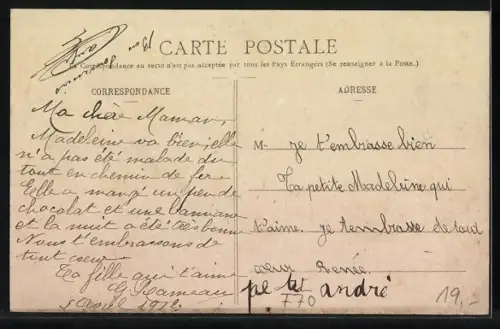 CARTE POSTALE
La Correspondance au recto n'est pas acceptée par tous les Pays Étrangers (Se renseigner à la Poste.)
CORRESPONDANCE
Ma chère Maman,
Madeleine va bien, elle
n'a pas été malade du
tout en chemin de fer
Elle a mangé un peu de
chocolat et une banane
et la nuit a été très bonne
Nous t'embrassons de
tout cœur
Ta fille qui t'aime
G. Rameau
5 Août 1912
ADRESSE
M je t'embrasse bien
Ta petite Madeleine qui
t'aime. je tembrasse de tout
cœur Renée.
petit andré
770
19,-